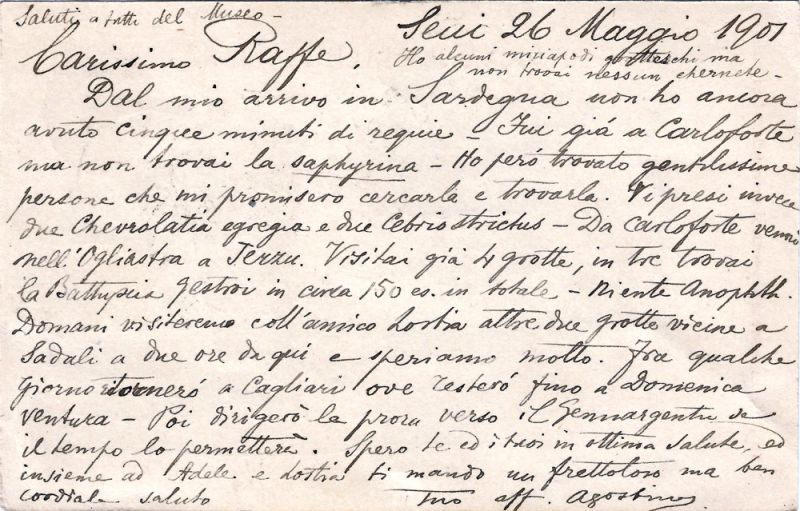 Saluti a tutti del Museo -
Seui 26 Maggio 1901
Carissimo Raffe,
Ho alcuni miriapodi grotteschi ma
non trovai nessun chernete -
Dal mio arrivo in Sardegna non ho ancora
avuto cinque minuti di requie - Fui giá a Carloforte
ma non trovai la saphyrina - Ho peró trovato gentilissime
persone che mi promisero cercarla e trovarla. Vi presi invece
due Chevrolatia egregia e due Cebrio strictus - Da Carloforte venni
nell'Ogliastra a Jerzu. Visitai giá 4 grotte, in tre trovai
la Battuscia Gestroi in circa 150 es. in totale - Niente Anophth.
Domani visiteremo coll'amico Lostia altre due grotte vicine a
Sadali a due ore da qui e speriamo molto. Fra qualche
giorno torneró a Cagliari ove resteró fino a Domenica
ventura - Poi dirigeró la prora verso il Gennargentu se
il tempo lo permetterà. Spero te ed i tuoi in ottima salute, ed
insieme ad Adele e Lostia ti mando un frettoloso ma ben
cordiale saluto tuo aff. Agostino